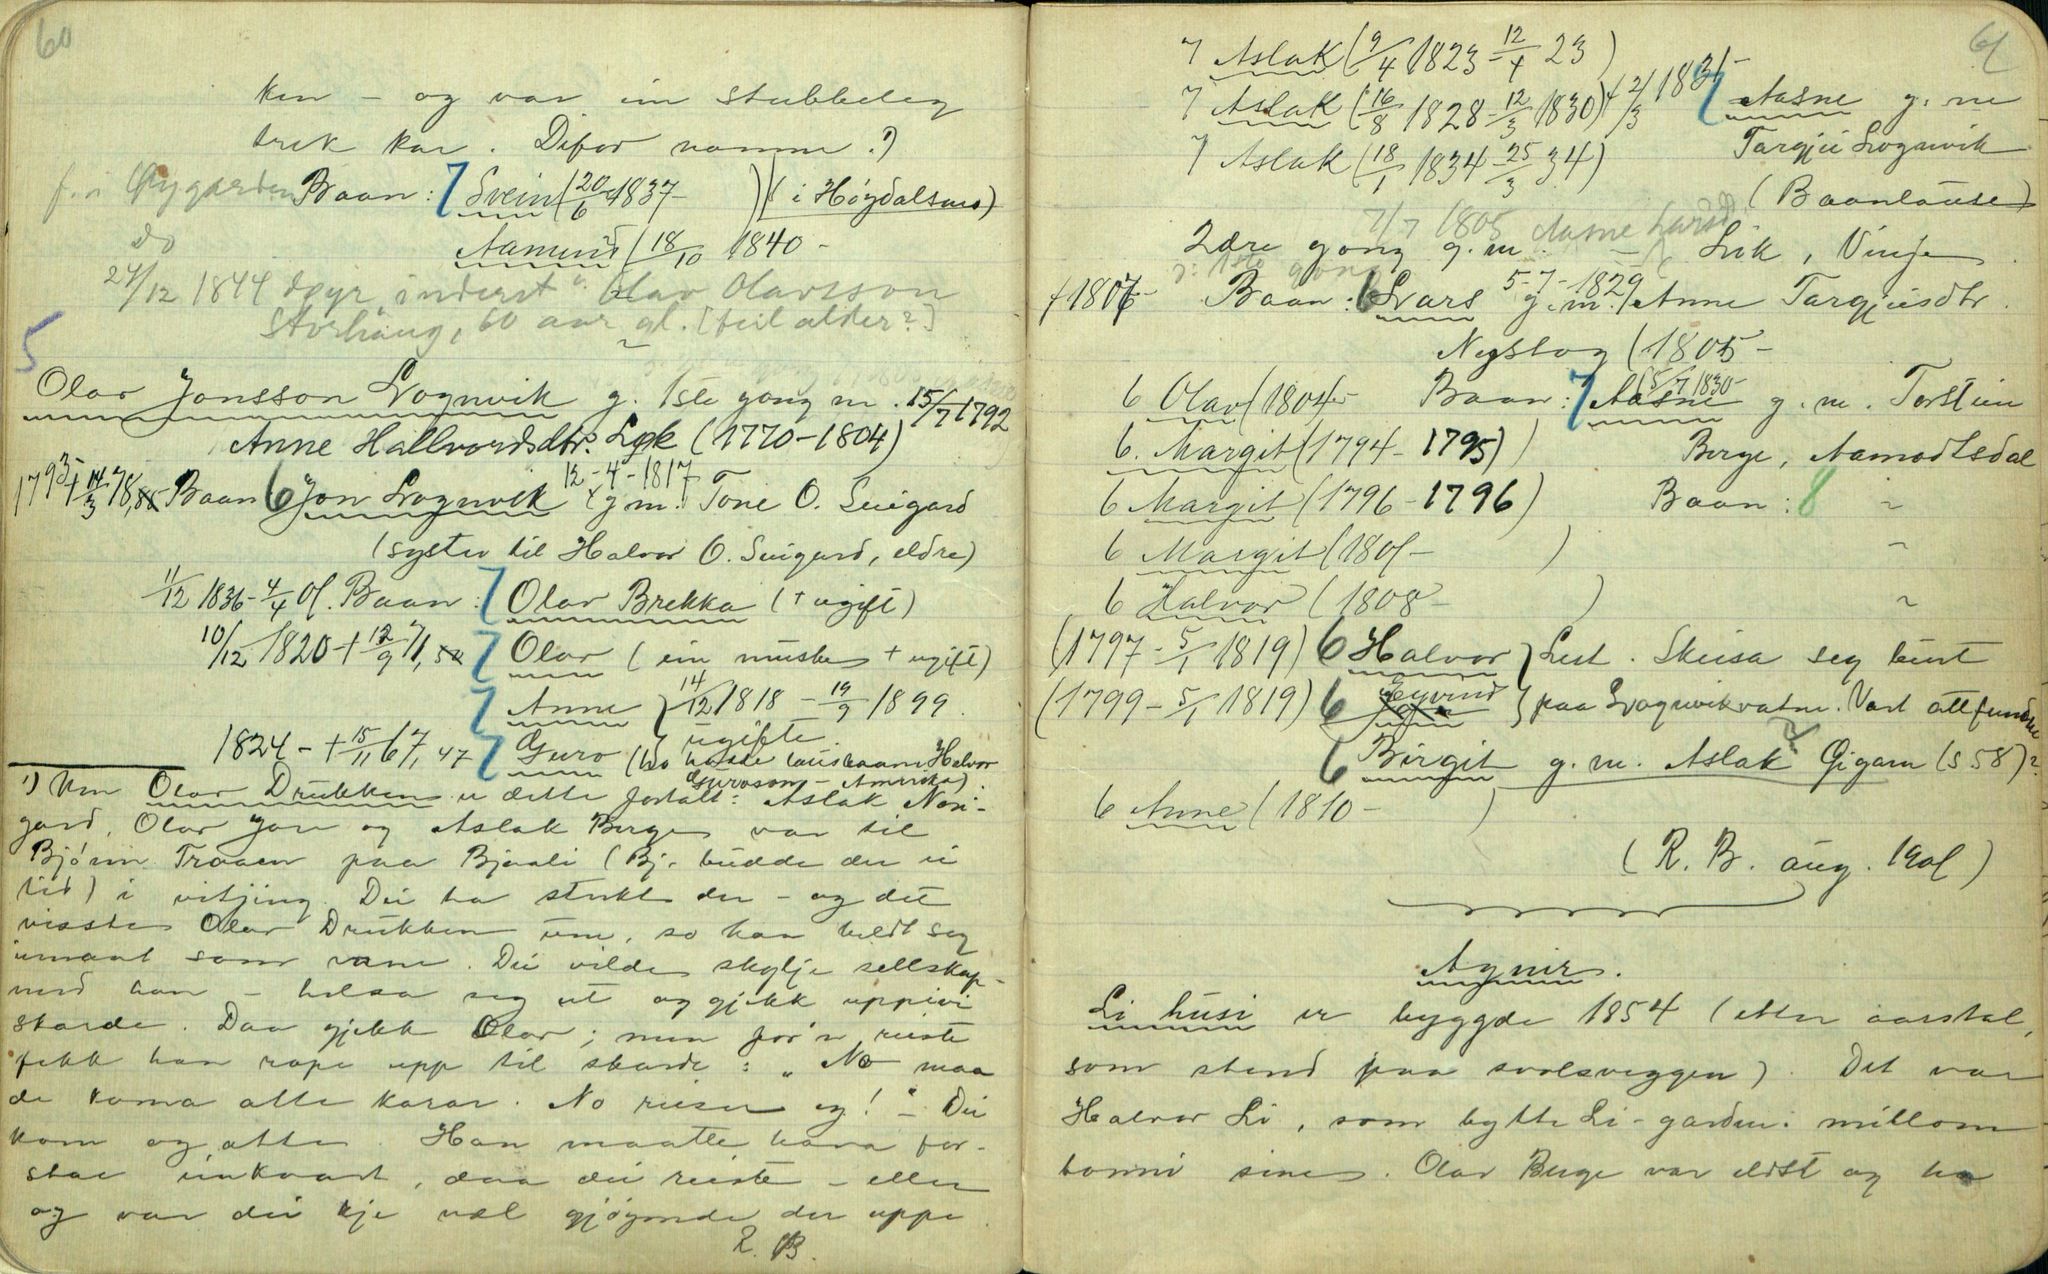 60
ken - og var ein stubbeleg
brek kar. Difor namne.¹)
f. i Øygarden Baan: 7 Svein (20/6 1837- ) (i Høydalsmo)
do Aamund (18/10 1840 -
27/12 1844 døyr inderst Olav Olavsson
Storhaug, 60 aar gl. [feil alder?]
5
Olav Jonsson Vognvik g. 1ste gong m. 15/7 1792
Anne Hallvordsdtr. Løk (1770-1804)
1793 + 14/3 78, 85 Baan 6 Jon Lognvik g. m. 12-4-1817 Tone O. Suigard
(syster til Halvor O. Suigard, eldre)
11/12 1836 - 4/4 01. Baan: 7 Olav Brekka (+ ugift)
10/12 1820 + 12/9 71, 7 Olav (ein + ugift)
7 Anne } 14/12 1818 - 19/9 1899.
ugifte
1824 - + 15/11 67, 47 7 Guro (ho hadde lausbaane Halvor
Guroson - Amerika)
¹) Um Olav Drukken er dette fortalt: Aslak Nori-
gard, Olav Jore og Aslak Berge var til
Bjønn Traaen paa Bjaali (Bj. budde der ei
tid) i vitjing. Dei ha stelt der - og det
visste Olav Drukken um, so han heldt seg
imaat som vane. Dei vilde skylje sellskap
med han - helsa seg ut og gjekk uppivi
skarde. Daa gjekk Olav; men før'n reiste
fekk han rope upp til skarde: "No maa
de koma atte karar. No reiser eg!" - Dei
kom og atte. Han maatte hava for-
stae einkvart, daa dei reiste - eller
og var dei kje vel gjøymde der uppe.
R. B.
61
7 Aslak (9/4 1823 - 12/4 23)
7 Aslak (16/8 1828 - 12/3 1830) + 2/3 1831- 7 Aasne g. m
7 Aslak (18/1 1834 25/3 34) Targjei Lognvik
(Baanlause)
7/7 1805 Aasne
2dre gong g. m. - Lik, Vinje
+ 1807- Baan: 6 Lvars 5-7-1829 g. m. Anne Targjeisdtr.
Nystog (1805 -
6 Olav (1804- Baan: 7 Aasne (5/7 1830- g. m. Torstein
6. Margit (1794 - 1795) Berge, Aamodtsdal
6 Margit (1796 - 1796) Baan: 8 "
6 Margit (1801 - ) "
6 Halvor (1808 - ) "
(1797 - 5/1 1819) 6 Halvor } Lest. Skeisa seg burt
(1799 - 5/1 1819) 6 Eyvind } paa Lognvikvatne. Vart attfundne
6 Birgit g. m. Aslak Gigarn (s 58)?
6 Anne (1810 - )
(R. B. aug. 1901)
Agnir.
Li husi er byggde 1854 (etter aarstal,
som stend paa svolsveggen). Det var
Halvor Li, som bytte Li-garden: millom
bonni sine. Olav Berge var eldst og ha